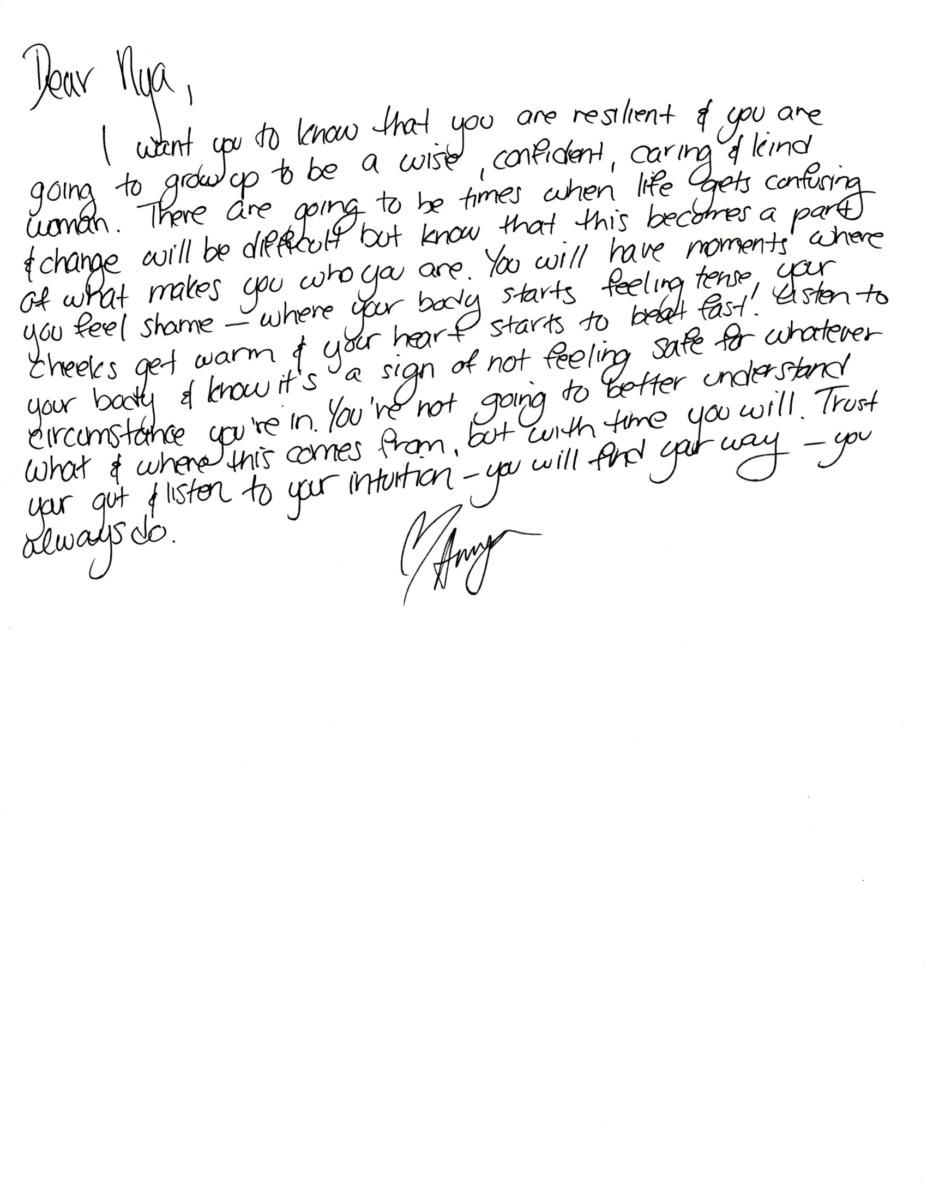 Dear Nya,
I want you to know that you are resilient & you are
going to grow up to be a wise, confident, caring & kind
woman. There are going to be times when life gets confusing
& change will be difficult but know that this becomes a part
of what makes you who you are. You will have moments where
you feel shame – where your body starts feeling tense, your
cheeks get warm & your heart starts to beat fast! Listen to
your body & know it's a sign of not feeling safe for whatever
circumstance you're in. You're not going to better understand
what & where this comes from, but with time you will. Trust
your gut & listen to your intuition – you will find your way – you
always do.